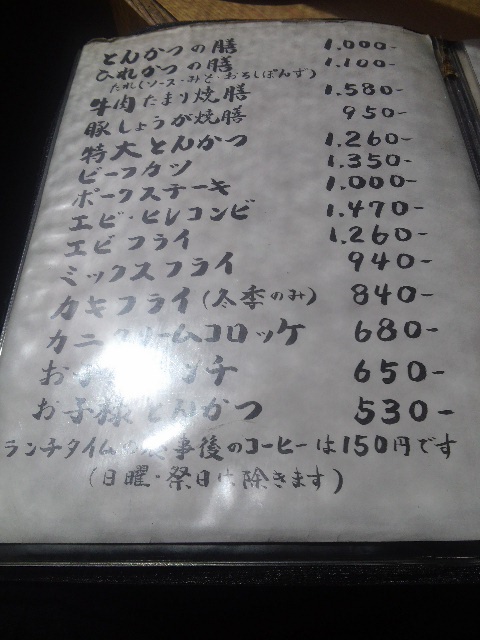 とんかつの膳 1.000-
ひれかつの膳 1.100-
たれ(ソース・みそ・おろしぽんず)
牛肉たまり焼膳 1.580-
豚しょうが焼膳 950-
特大とんかつ 1.260-
ビーフカツ 1.350-
ポークステーキ 1.000-
エビ・ヒレコンビ 1.470-
エビフライ 1.260-
ミックスフライ 940-
カキフライ(冬季のみ) 840-
カニクリームコロッケ 680-
お子 ンチ 650-
お子様とんかつ 530-
ランチタイムの 事後のコーヒーは150円です
(日曜・祭日は除きます)